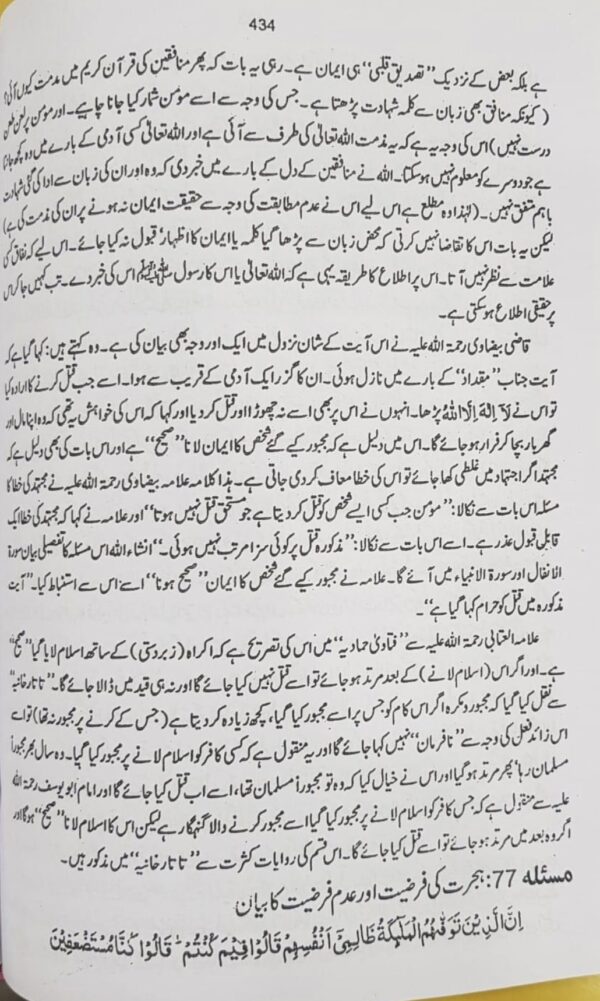 434
ہے بلکہ بعض کے نزدیک ”تصدیق قلبی“ ہی ایمان ہے۔ رہی یہ بات کہ پھر منافقین کی قرآن کریم میں مذمت کیوں آئی؟
(کیونکہ منافق بھی زبان سے کلمہ شہادت پڑھتا ہے۔ جس کی وجہ سے اسے مؤمن شمار کیا جانا چاہیے۔ اور مؤمن پر لعن طعن
درست نہیں) اس کی وجہ یہ ہے کہ یہ مذمت اللہ تعالیٰ کی طرف سے آئی ہے اور اللہ تعالیٰ کسی آدمی کے بارے میں وہ کچھ جانتا
ہے جو دوسرے کو معلوم نہیں ہوسکتا۔ اللہ نے منافقین کے دل کے بارے میں خبر دی کہ وہ اور ان کی زبان سے ادا کی گئی شہادت
باہم متفق نہیں۔ (لہٰذا وہ مطلع ہے اس لیے اس نے عدم مطابقت کی وجہ سے حقیقت ایمان نہ ہونے پر ان کی مذمت کی ہے)
لیکن یہ بات اس کا تقاضا نہیں کرتی کہ محض زبان سے پڑھا گیا کلمہ یا ایمان کا اظہار ’قبول نہ کیا جائے۔ اس لیے کہ نفاق کی
علامت سے نظر نہیں آتا۔ اس پر اطلاع کا طریقہ یہی ہے کہ اللہ تعالیٰ یا اس کا رسول ﷺ اس کی خبر دے۔ تب کہیں جا کر اس
پر حقیقی اطلاع ہوسکتی ہے۔
قاضی بیضاوی رحمۃ اللہ علیہ نے اس آیت کے شان نزول میں ایک اور وجہ بھی بیان کی ہے۔ وہ کہتے ہیں: کہا گیا ہے کہ
آیت جناب ”مقداد“ کے بارے میں نازل ہوئی۔ ان کا گزر ایک آدمی کے قریب سے ہوا۔ اسے جب قتل کرنے کا ارادہ کیا
تو اس نے لَآ اِلٰهَ اِلَّا اللهُ پڑھا۔ انہوں نے اس پر بھی اسے نہ چھوڑا اور قتل کر دیا اور کہا کہ اس کی خواہش یہ تھی کہ وہ اپنا مال اور
گھر بار بچا کر فرار ہو جائے گا۔ اس میں دلیل ہے کہ مجبور کیے گئے شخص کا ایمان لانا ”صحیح“ ہے اور اس بات کی بھی دلیل ہے کہ
مجتہد اگر اجتہاد میں غلطی کھا جائے تو اس کی خطا معاف کر دی جاتی ہے۔ ہذا کلامہ علامہ بیضاوی رحمۃ اللہ علیہ نے مجتہد کی خطا کا
مسئلہ اس بات سے نکالا: ”مؤمن جب کسی ایسے شخص کو قتل کر دیتا ہے جو مستحق قتل نہیں ہوتا“ اور علامہ نے کہا کہ مجتہد کی خطا ایک
قابل قبول عذر ہے۔ اسے اس بات سے نکالا: ”مذکورہ قتل پر کوئی سزا مرتب نہیں ہوئی۔“ انشاء اللہ اس مسئلہ کا تفصیلی بیان سورۃ
الانفال اور سورۃ الانبیاء میں آئے گا۔ علامہ نے مجبور کیے گئے شخص کا ایمان ”صحیح ہونا“ اسے اس سے استنباط کیا۔ ”آیت
مذکورہ میں قتل کو حرام کہا گیا ہے“۔
علامہ العتابی رحمۃ اللہ علیہ سے ”فتاویٰ حمادیہ“ میں اس کی تصریح ہے کہ اکراہ (زبردستی) کے ساتھ اسلام لایا گیا ”صحیح“
ہے۔ اور اگر اس (اسلام لانے) کے بعد مرتد ہو جائے تو اسے قتل نہیں کیا جائے گا اور نہ ہی قید میں ڈالا جائے گا۔ ”تاتارخانیہ“
سے نقل کیا گیا کہ مجبور و مکرہ اگر اس کام کو جس پر اسے مجبور کیا گیا، کچھ زیادہ کر دیتا ہے (جس کے کرنے پر مجبور نہ تھا) تو اسے
اس زائد فعل کی وجہ سے ”نافرمان“ نہیں کہا جائے گا اور یہ منقول ہے کہ کسی کافر کو اسلام لانے پر مجبور کیا گیا۔ وہ سال بھر مجبوراً
مسلمان رہا‘ پھر مرتد ہو گیا اور اس نے خیال کیا کہ وہ تو مجبوراً مسلمان تھا، اسے اب قتل کیا جائے گا اور امام ابو یوسف رحمۃ اللہ
علیہ سے منقول ہے کہ جس کافر کو اسلام لانے پر مجبور کیا گیا اسے مجبور کرنے والا گنہگار ہے لیکن اس کا اسلام لانا ”صحیح“ ہوگا اور
اگر وہ بعد میں مرتد ہو جائے تو اسے قتل کیا جائے گا۔ اس قسم کی روایات کثرت سے ”تاتارخانیہ“ میں مذکور ہیں۔
مسئلہ 77: ہجرت کی فرضیت اور عدم فرضیت کا بیان
اِنَّ الَّذِيْنَ تَوَفّٰىهُمُ الْمَلٰٓئِكَةُ ظَالِمِيْٓ اَنْفُسِهِمْ قَالُوْا فِيْمَ كُنْتُمْ ۖ قَالُوْا كُنَّا مُسْتَضْعَفِيْنَ